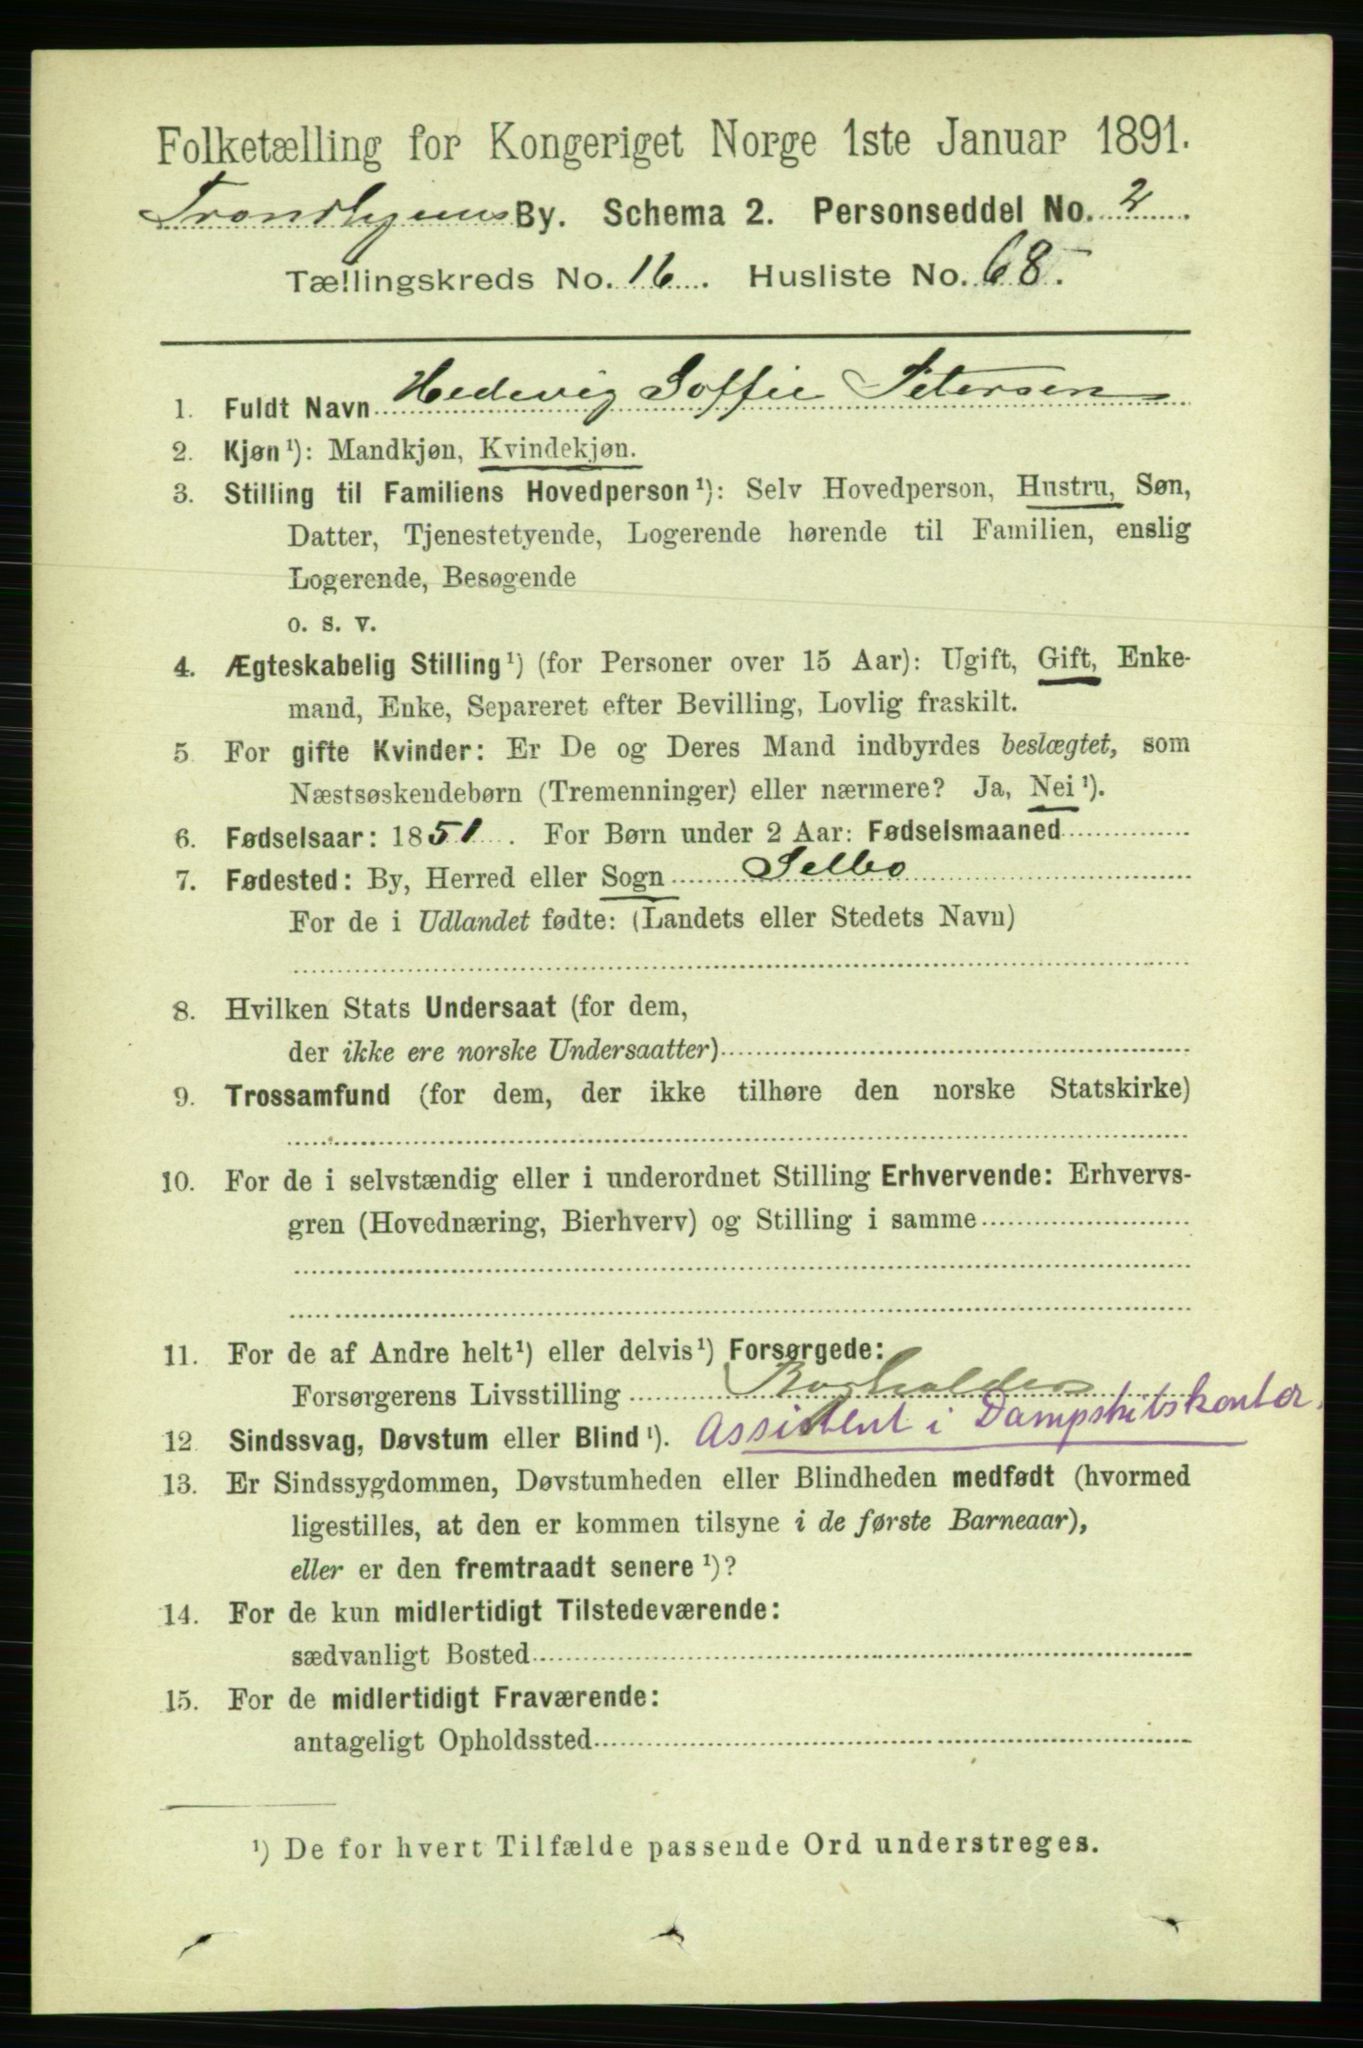 Folketælling for Kongeriget Norge 1ste Januar 1891.
Trondhjems By. Schema 2. Personseddel No. 2.
Tællingskreds No. 16. Husliste No. 68.
1. Fuldt Navn Hedevig Soffie Petersen
2. Kjøn¹): Mandkjøn, Kvindekjøn.
3. Stilling til Familiens Hovedperson¹): Selv Hovedperson, Hustru, Søn,
Datter, Tjenestetyende, Logerende hørende til Familien, enslig
Logerende, Besøgende
o. s. v.
4. Ægteskabelig Stilling¹) (for Personer over 15 Aar): Ugift, Gift, Enke-
mand, Enke, Separeret efter Bevilling, Lovlig fraskilt.
5. For gifte Kvinder: Er De og Deres Mand indbyrdes beslægtet, som
Næstsøskendebørn (Tremenninger) eller nærmere? Ja, Nei¹).
6. Fødselsaar: 1851. For Børn under 2 Aar: Fødselsmaaned
7. Fødested: By, Herred eller Sogn Selbo
For de i Udlandet fødte: (Landets eller Stedets Navn)
8. Hvilken Stats Undersaat (for dem,
der ikke ere norske Undersaatter)
9. Trossamfund (for dem, der ikke tilhøre den norske Statskirke)
10. For de i selvstændig eller i underordnet Stilling Erhvervende: Erhvervs-
gren (Hovednæring, Bierhverv) og Stilling i samme
11. For de af Andre helt¹) eller delvis¹) Forsørgede:
Forsørgerens Livsstilling Bogholder
Assistent i Dampskibskontor.
12 Sindssvag, Døvstum eller Blind¹).
13. Er Sindssygdommen, Døvstumheden eller Blindheden medfødt (hvormed
ligestilles, at den er kommen tilsyne i de første Barneaar),
eller er den fremtraadt senere¹)?
14. For de kun midlertidigt Tilstedeværende:
sædvanligt Bosted
15. For de midlertidigt Fraværende:
antageligt Opholdssted
¹) De for hvert Tilfælde passende Ord understreges.